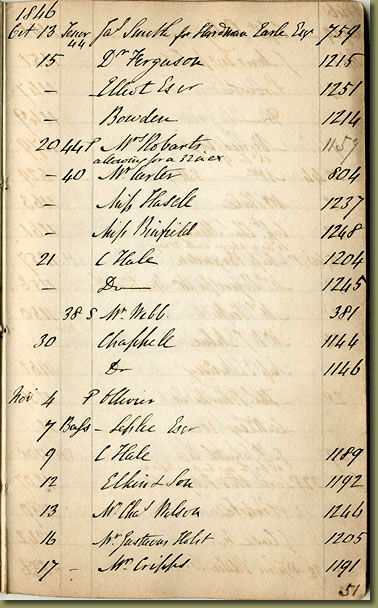 1846
Oct 13 Tenor 44 Jas Smith for Hardman Earle Esqr 759
15 Dr Ferguson 1215
- Elliot Esqr 1251
- Bowden 1214
20 44 P Mrs Robarts 1157
allowing for a 32 in ex
- 40 Mr Carter 804
- Miss Hasell 1237
- Miss Binfield 1248
21 C Hale 1204
- Do 1245
38 S Mr Webb 381
30 Chappell 1144
Do 1146
Nov 4 P Ollivier
7 Bass - Leslie Esqr
9 C Hale 1189
12 Elkin & Son 1192
13 Mr Chas Wilson 1246
16 Mr Gustavus Holst 1205
17 - Mr Cripps 1191
51